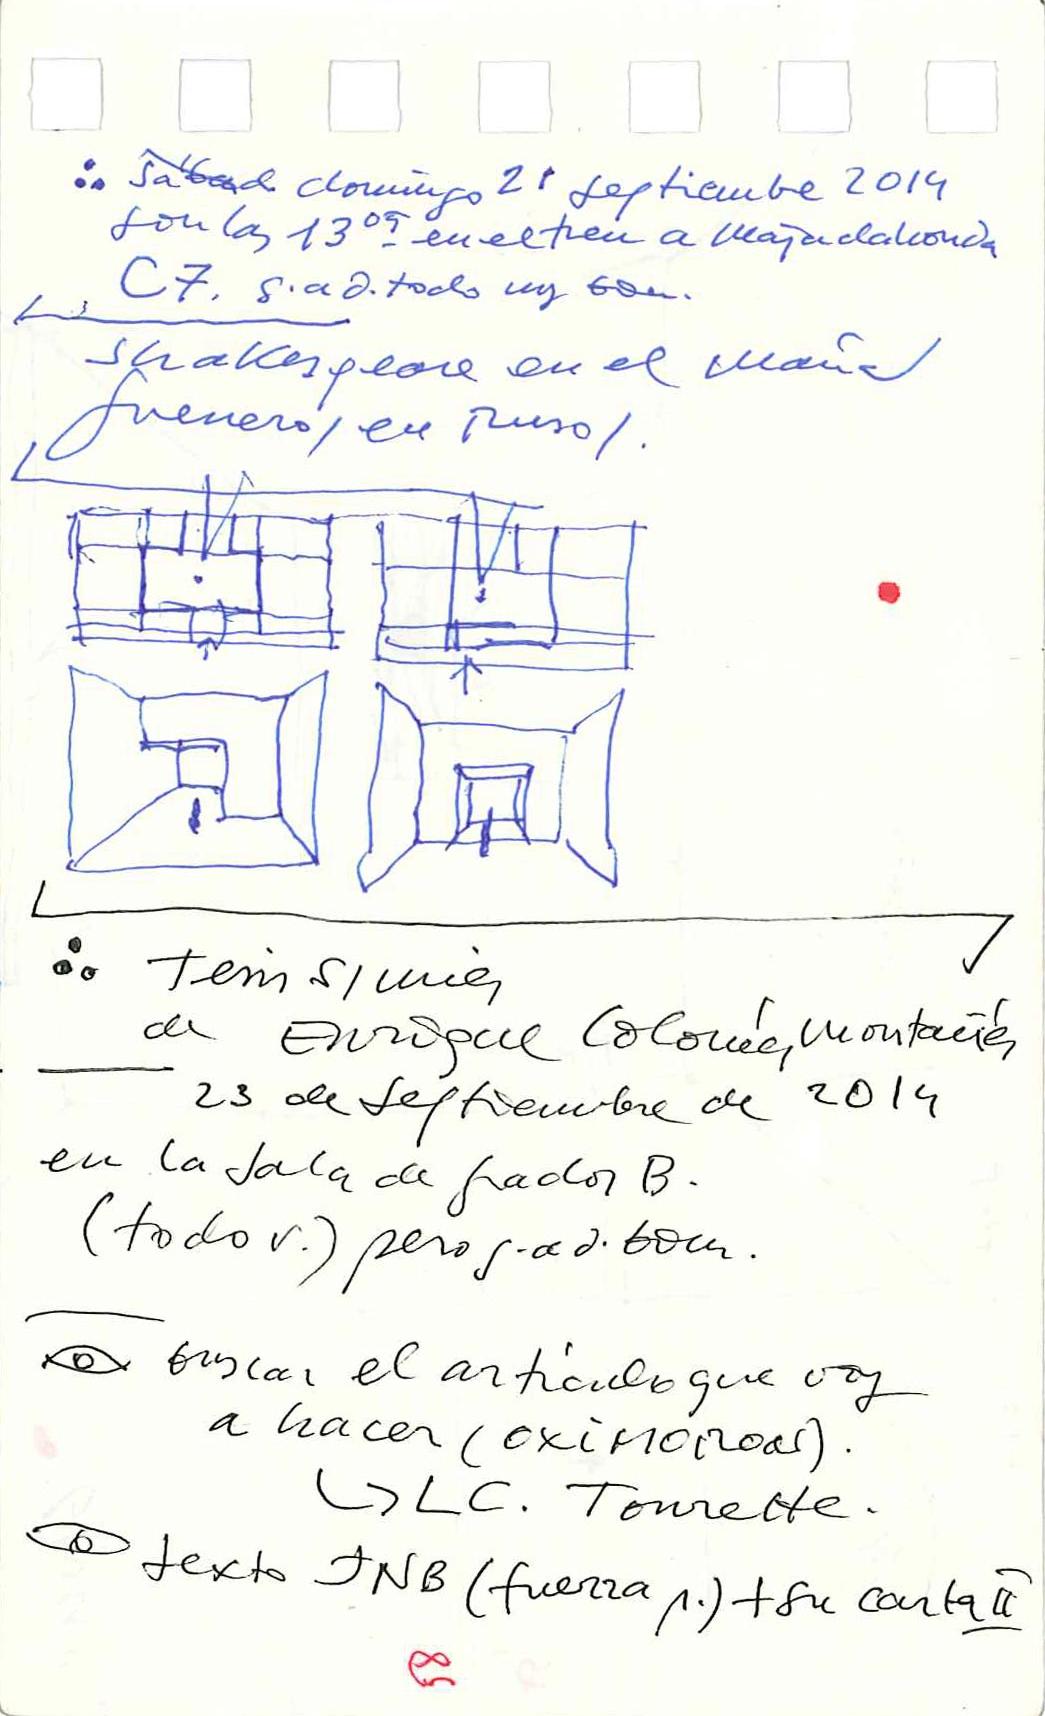 domingo 21 septiembre 2014
son las 13 05 en el tren a Majadahonda
C7. g. a d. todo muy bien.
Shakespeare en el María
Guerrero / en ruso /.
Tesis s/ mies
de Enrique Colomés Montañés
23 de Septiembre de 2014
en la Sala de grados B.
(todo r.) pero g. a d. bien.
buscar el artículo que voy
a hacer (OXIMORON).
LC. Tourette.
texto JNB (fuerza p.) + su carta II